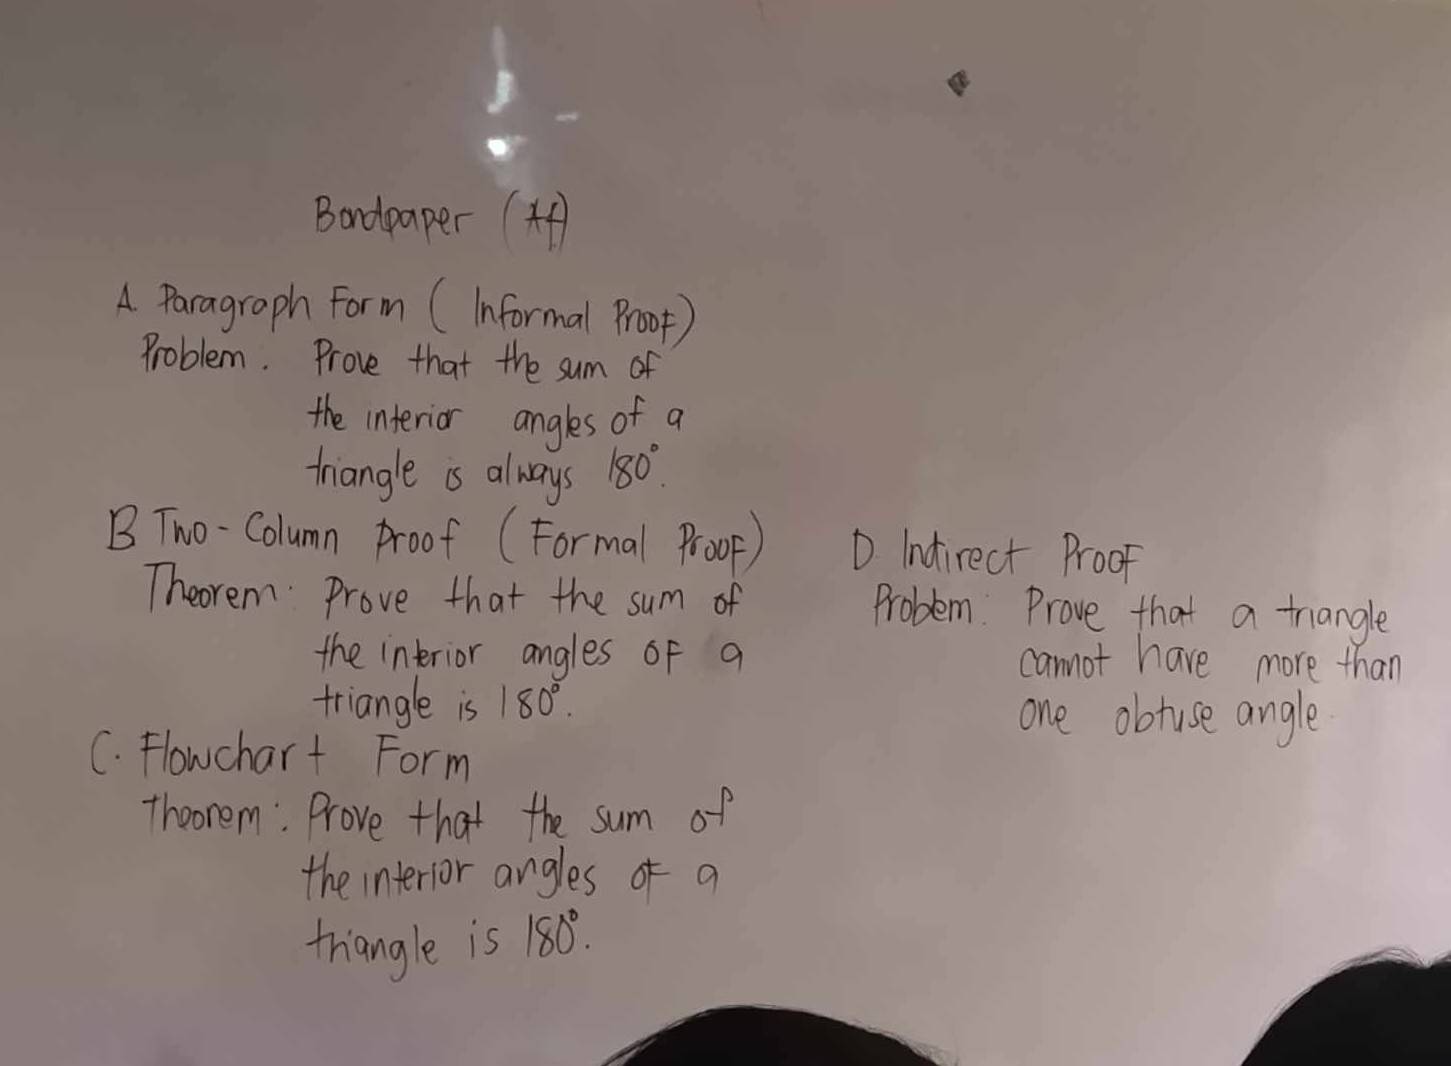 Bondpaper (A4)
A. Paragraph Form ( Informal Proof)
Problem. Prove that the sum of
the interior angles of a
triangle is always 180°.
B Two-Column Proof (Formal Proof)
Theorem: Prove that the sum of
the interior angles of a
triangle is 180°.
C. Flowchart Form
Theorem: Prove that the sum of
the interior angles of a
triangle is 180°.
D. Indirect Proof
Problem: Prove that a triangle
cannot have more than
one obtuse angle.